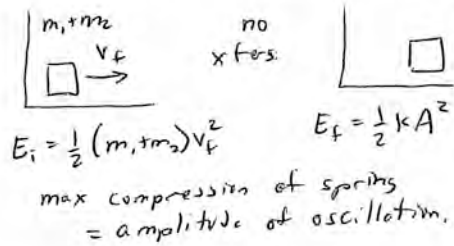 m₁+m₂
v_f
no
xfers.
E_i = ½ (m₁+m₂)v_f²
E_f = ½ kA²
max compression of spring
= amplitude of oscillation.